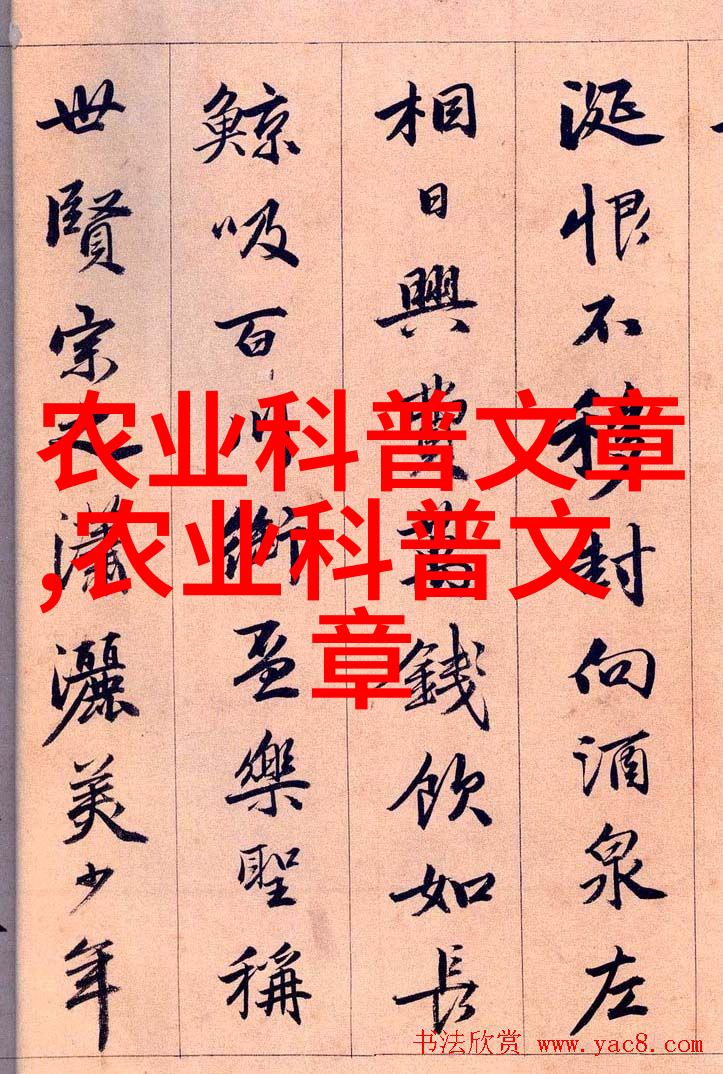 涎恨不移封向酒泉左
相日興費萬錢飲如長
鯨吸百川銜盃樂聖稱
世賢宗之瀟灑美少年
农业科普文章
,农业科普文
章
书法欣赏 www.yac8.com